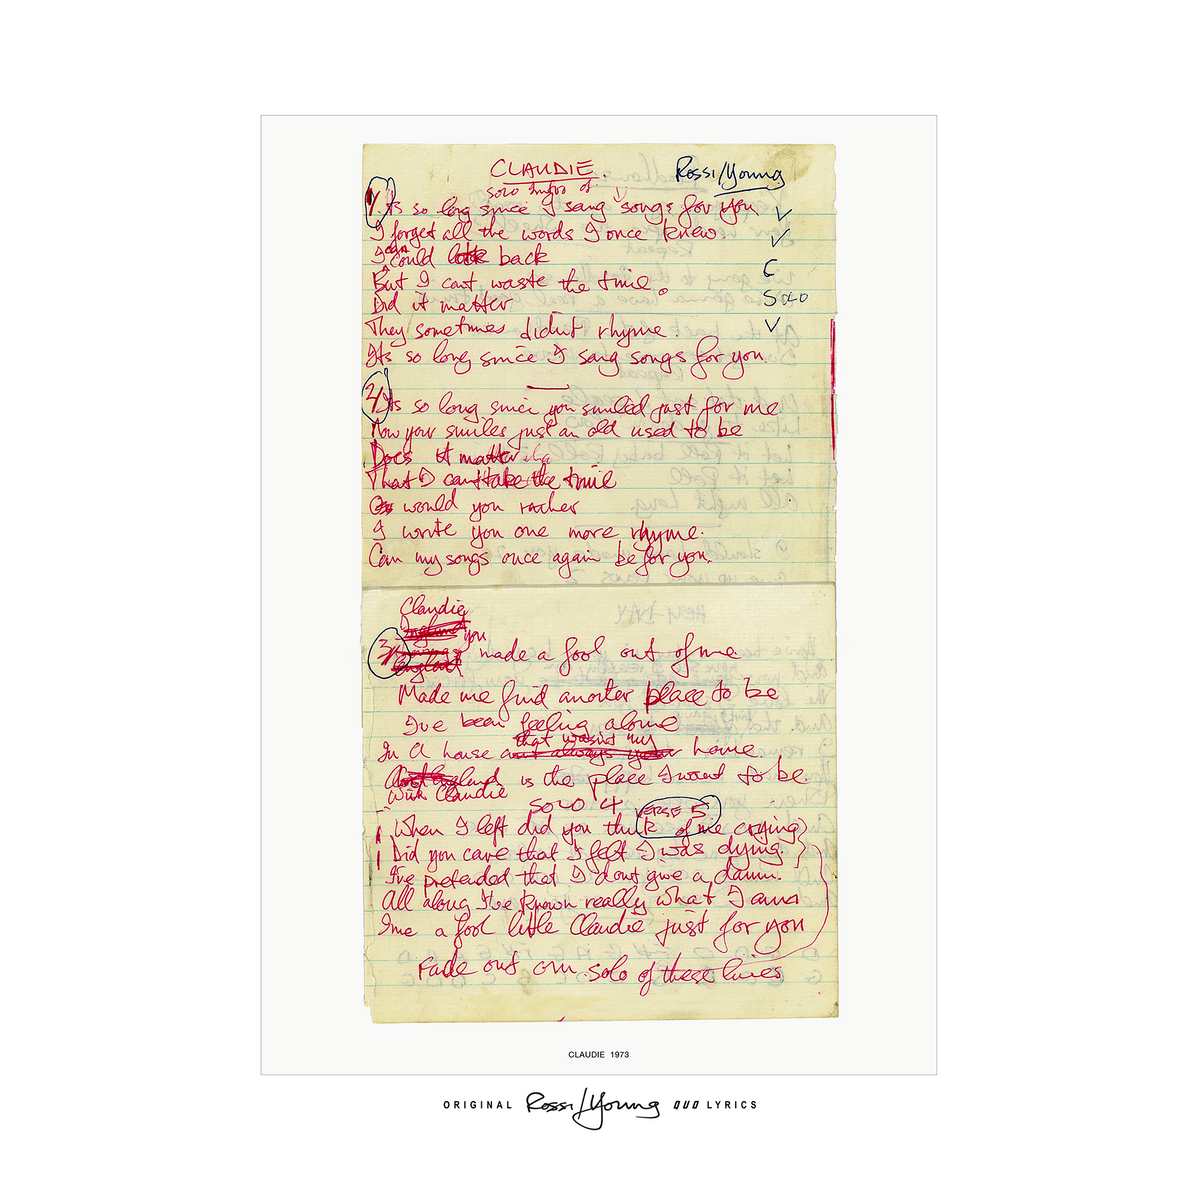 CLAUDIE. Rossi/Young
solo Intro of
1/. Its so long since I sang songs for you V
I forget all the words I once knew. V
I can could look back C
But I cant waste the time. SOLO
Did it matter
They sometimes didn't rhyme. V
Its so long since I sang songs for you.
2/. Its so long since you smiled just for me
Now your smiles just an old used to be
Does it matter
That I cant take the time
Or would you rather
I write you one more rhyme.
Can my songs once again be for you.
Claudie
England you
3/. made a fool out of me
England
Made me find another place to be
I've been feeling alone
that wasnt my
In a house aint always your home.
England is the place I want to be.
With Claudie
SOLO 4 VERSE 5
When I left did you think of me crying
Did you care that I felt I was dying.
I've pretended that I dont give a damn.
All along I've known really what I am
Ime a fool little Claudie just for you
Fade out on solo of these lines
CLAUDIE 1973
ORIGINAL Rossi/Young QUO LYRICS